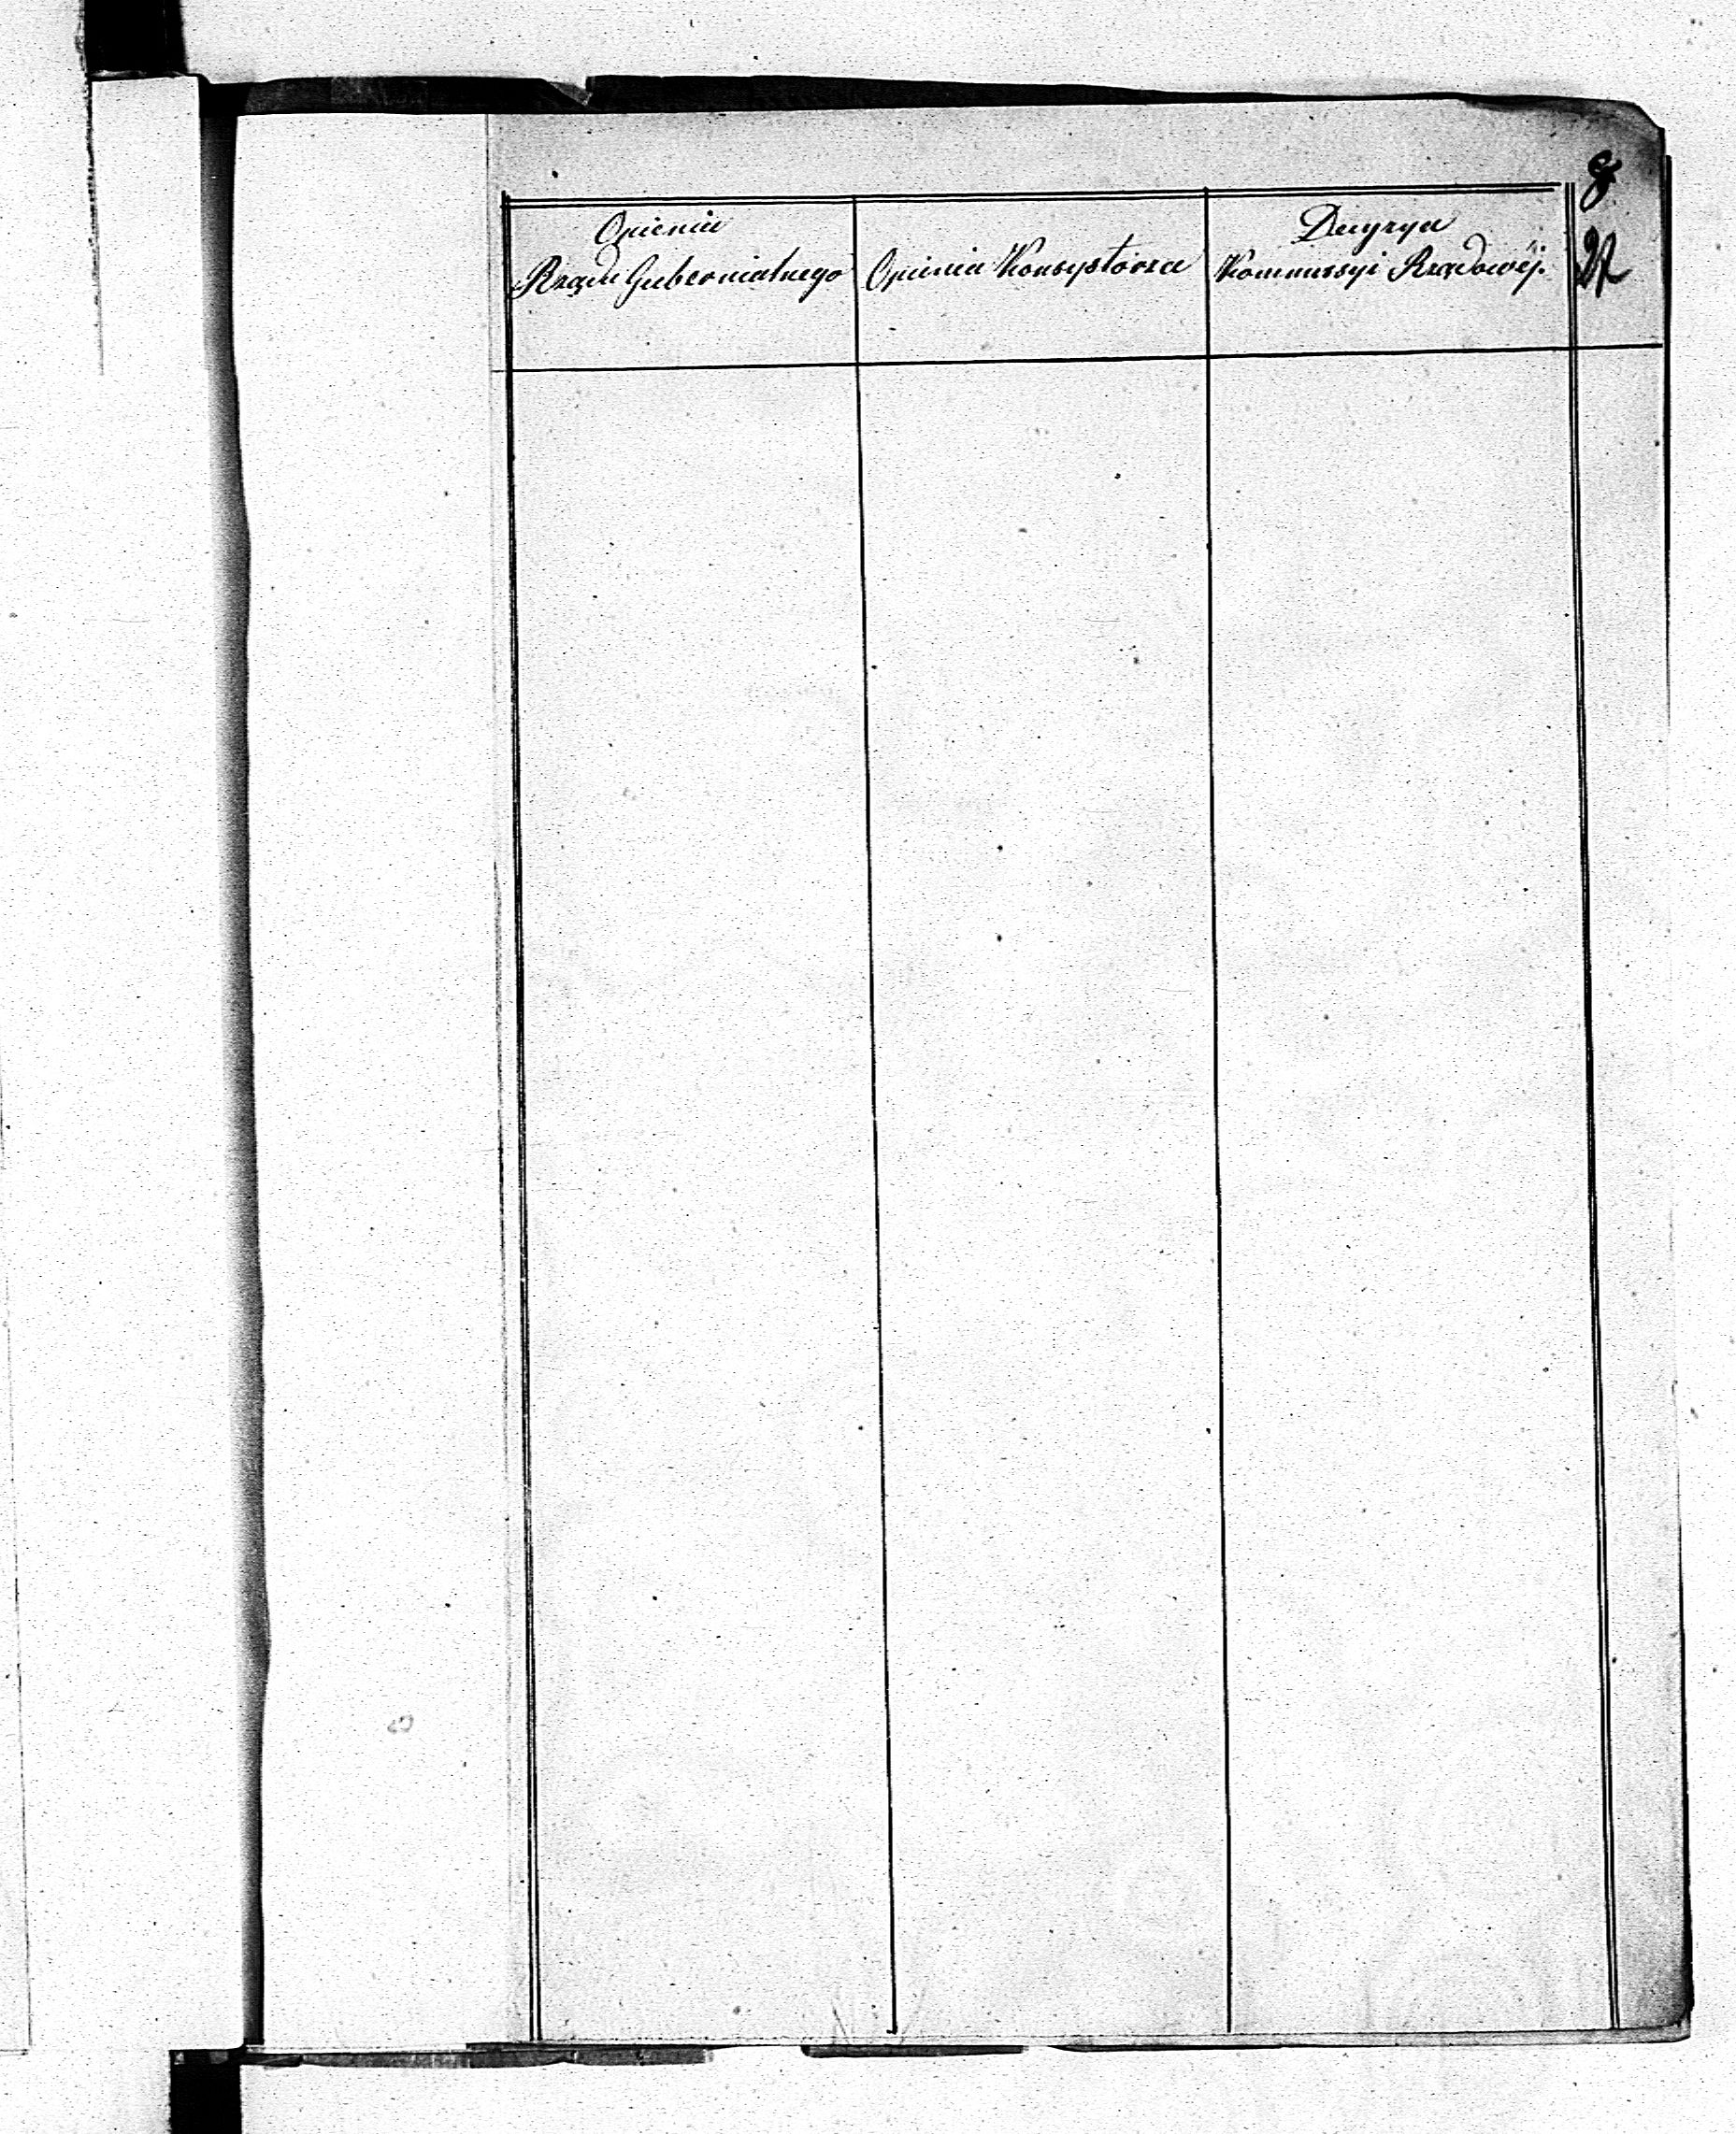 Opinia
Rządu Gubernialnego
Opinia Konsystorza
Decyzya
Kommissyi Rządowéj.
8